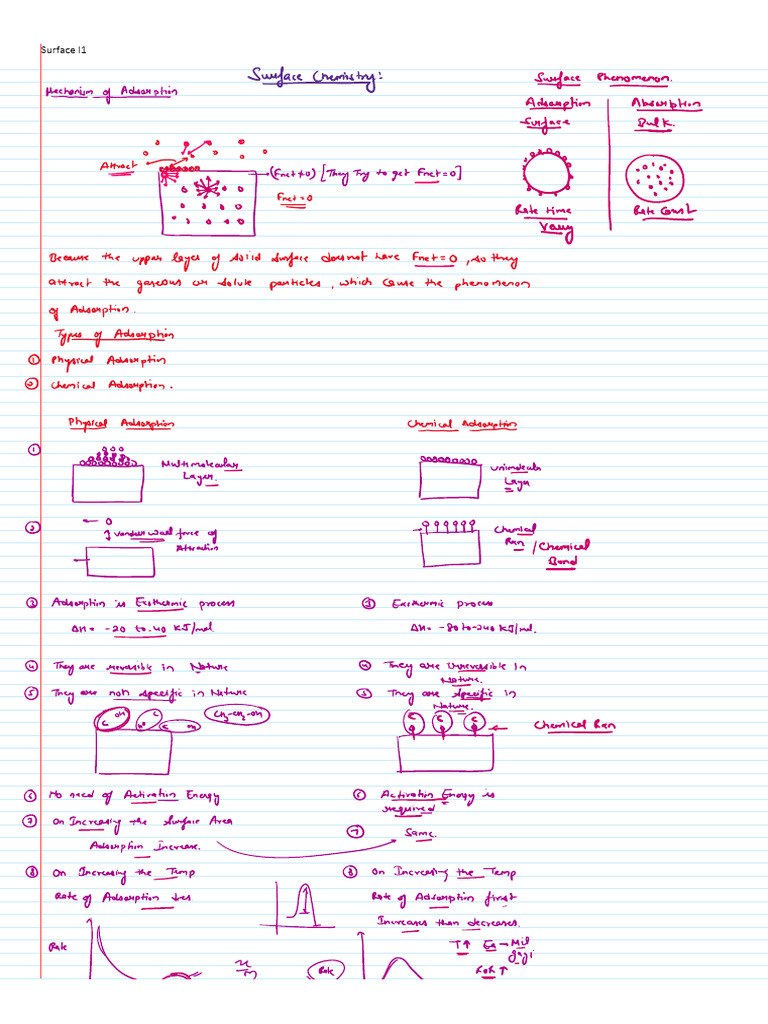 Surface l1
Surface Chemistry:
Mechanism of Adsorption
Surface Phenomenon.
Adsorption
Absorption
Surface
Bulk.
Attract
(Fnet≠0) [They Try to get Fnet=0]
Fnet=0
Rate time
Vary
Rate Const
Because the upper layer of solid surface doesnot have Fnet=0, so they
attract the gaseous or solute particles, which cause the phenomenon
of Adsorption.
Types of Adsorption
① Physical Adsorption
② Chemical Adsorption.
Physical Adsorption
Chemical Adsorption
①
Multimolecular
Layer.
unimolecular
Layer
②
vander waal force of
Attraction
Chemical
Rxn / Chemical
Bond
③ Adsorption is Exothermic process
ΔH = -20 to -40 KJ/mol.
③ Exothermic process
ΔH = -80 to -240 KJ/mol.
④ They are reversible in Nature
④ They are irreversible in
Nature.
⑤ They are not specific in Nature
⑤ They are specific in
Nature.
CH3-CH2-OH
Chemical Rxn
⑥ No need of Activation Energy
⑥ Activation Energy is
required
⑦ On Increasing the Surface Area
Adsorption Increase.
⑦ Same.
⑧ On Increasing the Temp
Rate of Adsorption ↓es.
⑧ On Increasing the Temp
Rate of Adsorption first
Increases than decreases.
T↑ Ea → Mil
jaygi
Rate
x/m
Rate
ROR ↑